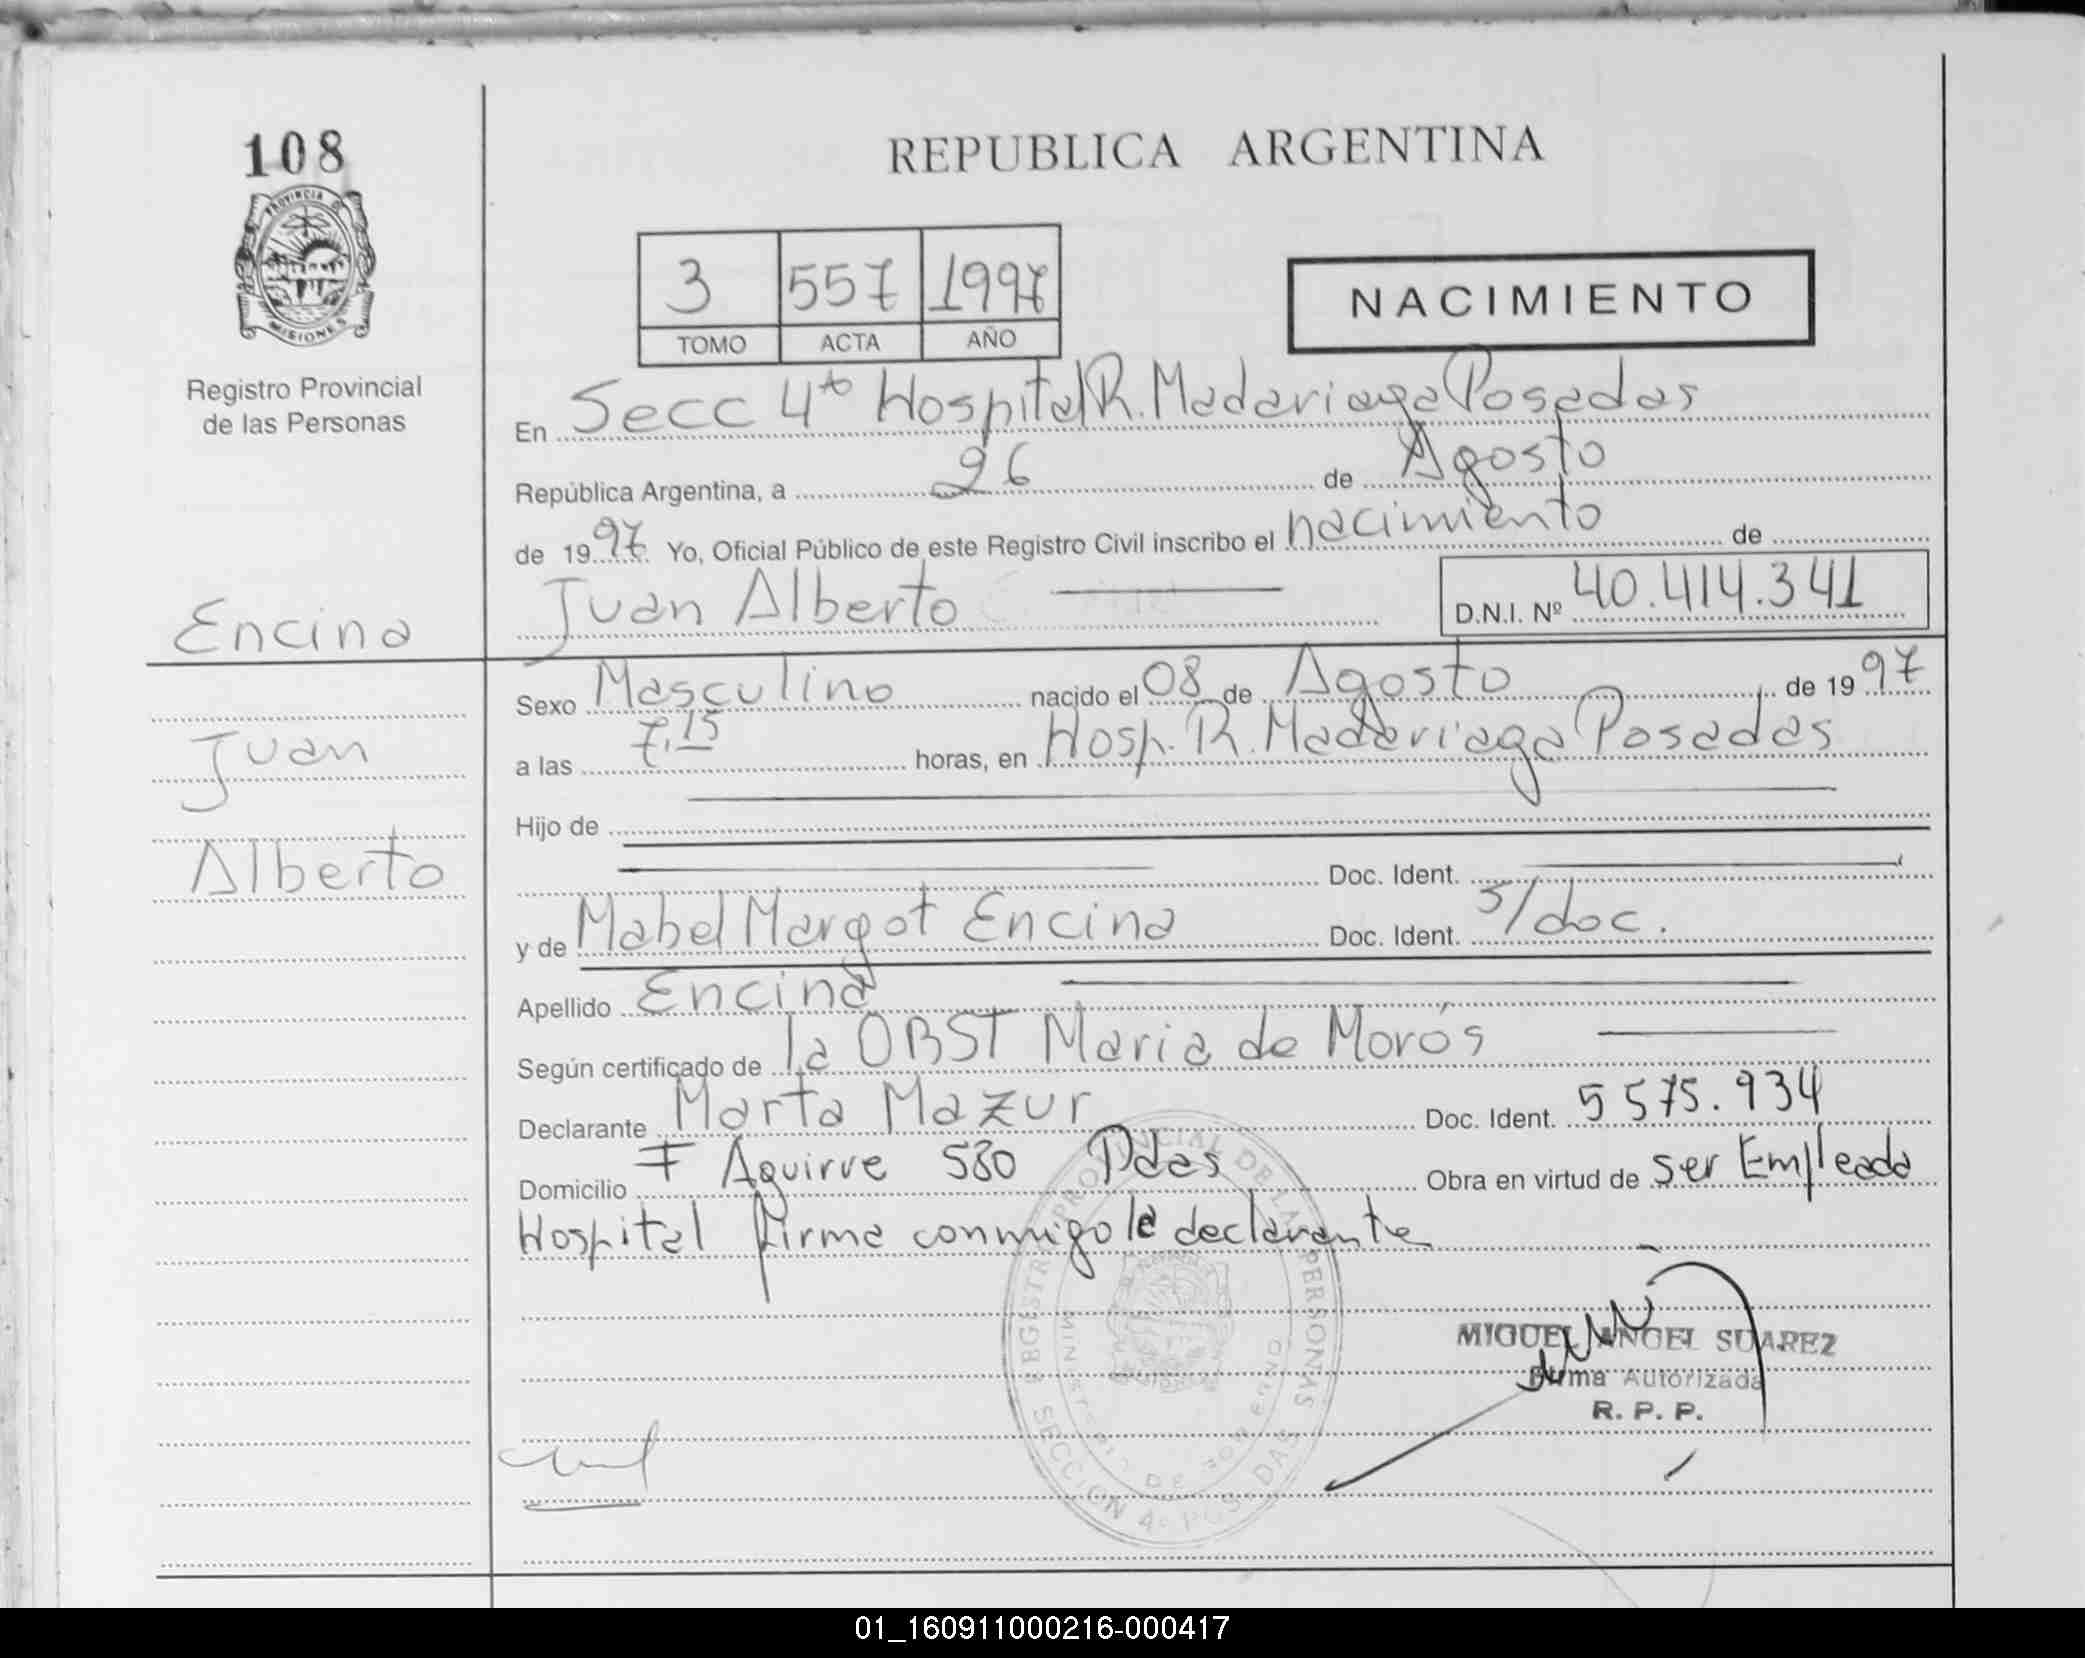 108
PROVINCIA D
MISIONES
Registro Provincial
de las Personas
REPUBLICA ARGENTINA
3 557 1997
TOMO ACTA AÑO
NACIMIENTO
En Secc 4ta Hospital R. Madariaga Posadas
República Argentina, a 26 de Agosto
de 1997 Yo, Oficial Público de este Registro Civil inscribo el nacimiento de
Juan Alberto D.N.I. Nº 40.414.341
Encina
Juan
Alberto
Sexo Masculino nacido el 08 de Agosto de 1997
a las 7.15 horas, en Hosp. R. Madariaga Posadas
Hijo de
Doc. Ident.
y de Mabel Margot Encina Doc. Ident. s/doc.
Apellido Encina
Según certificado de la OBST Maria de Morós
Declarante Marta Mazur Doc. Ident. 5575.934
Domicilio F Aguirre 580 Pdas Obra en virtud de ser Empleada
Hospital Firma conmigo la declarante
REGISTRO PROVINCIAL DE LAS PERSONAS
MINISTERIO DE GOBIERNO
SECCION 4a POSADAS
MIGUEL ANGEL SUAREZ
Firma Autorizada
R. P. P.
01_160911000216-000417